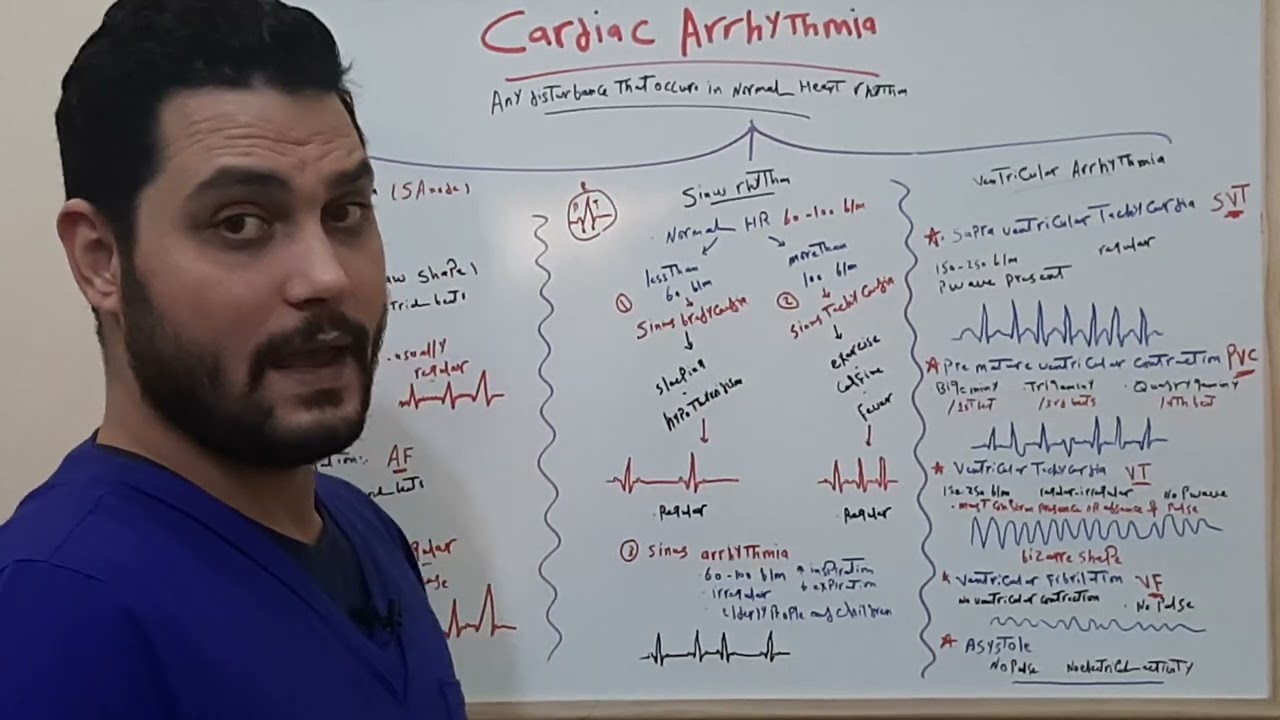 Cardiac Arrhythmia
Any disturbance That occurs in Normal Heart rhythm
(SA node)
aw shape)
usually
regular
AF
Sinus rhythm
R
P T
Normal HR 60-100 b/m
less Than
60 b/m
① Sinus bradycardia
sleeping
Regular
more Than
100 b/m
② Sinus Tachycardia
exercise
caffine
Fever
Regular
③ Sinus arrhythmia
60-100 b/m ↑ inspiration
irregular ↓ expiration
elderly people and children
Ventricular Arrhythmia
Supra ventricular Tachycardia SVT
150-250 b/m regular
P wave present
Pre mature ventricular contraction PVC
Bigeminy Trigeminy
Ventricular Tachycardia VT
150-250 b/m regular-irregular No P wave
must confirm presence or absence of pulse
bizarre shape
Ventricular Fibrilltion VF
No ventricular contraction No Pulse
Asystole
No Pulse No electrical activity